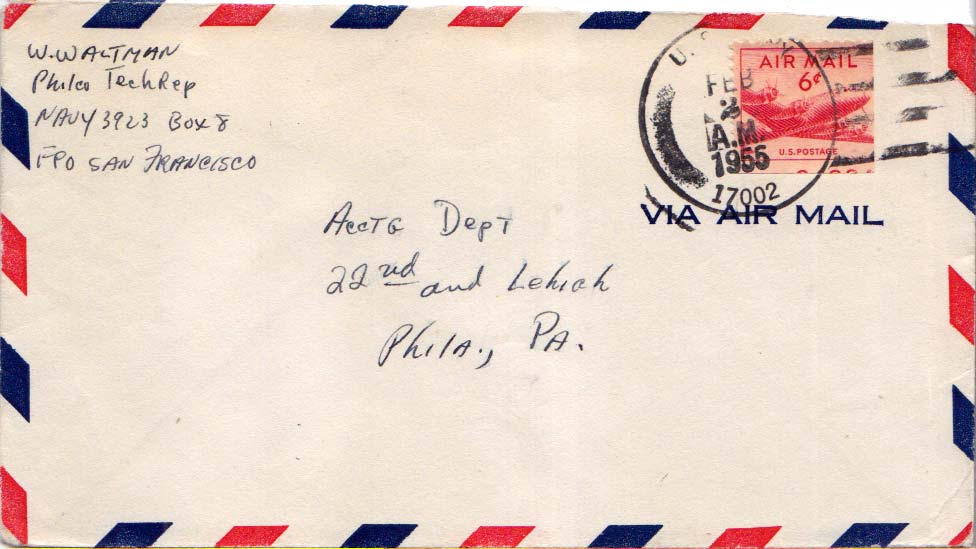 W. WALTMAN
Philco TechRep
NAVY 3923 Box 8
FPO SAN FRANCISCO
U. S.
FEB
2
A.M.
1955
17002
AIR MAIL
6¢
U.S. POSTAGE
VIA AIR MAIL
AccTG DepT
22nd and Lehigh
Phila., PA.